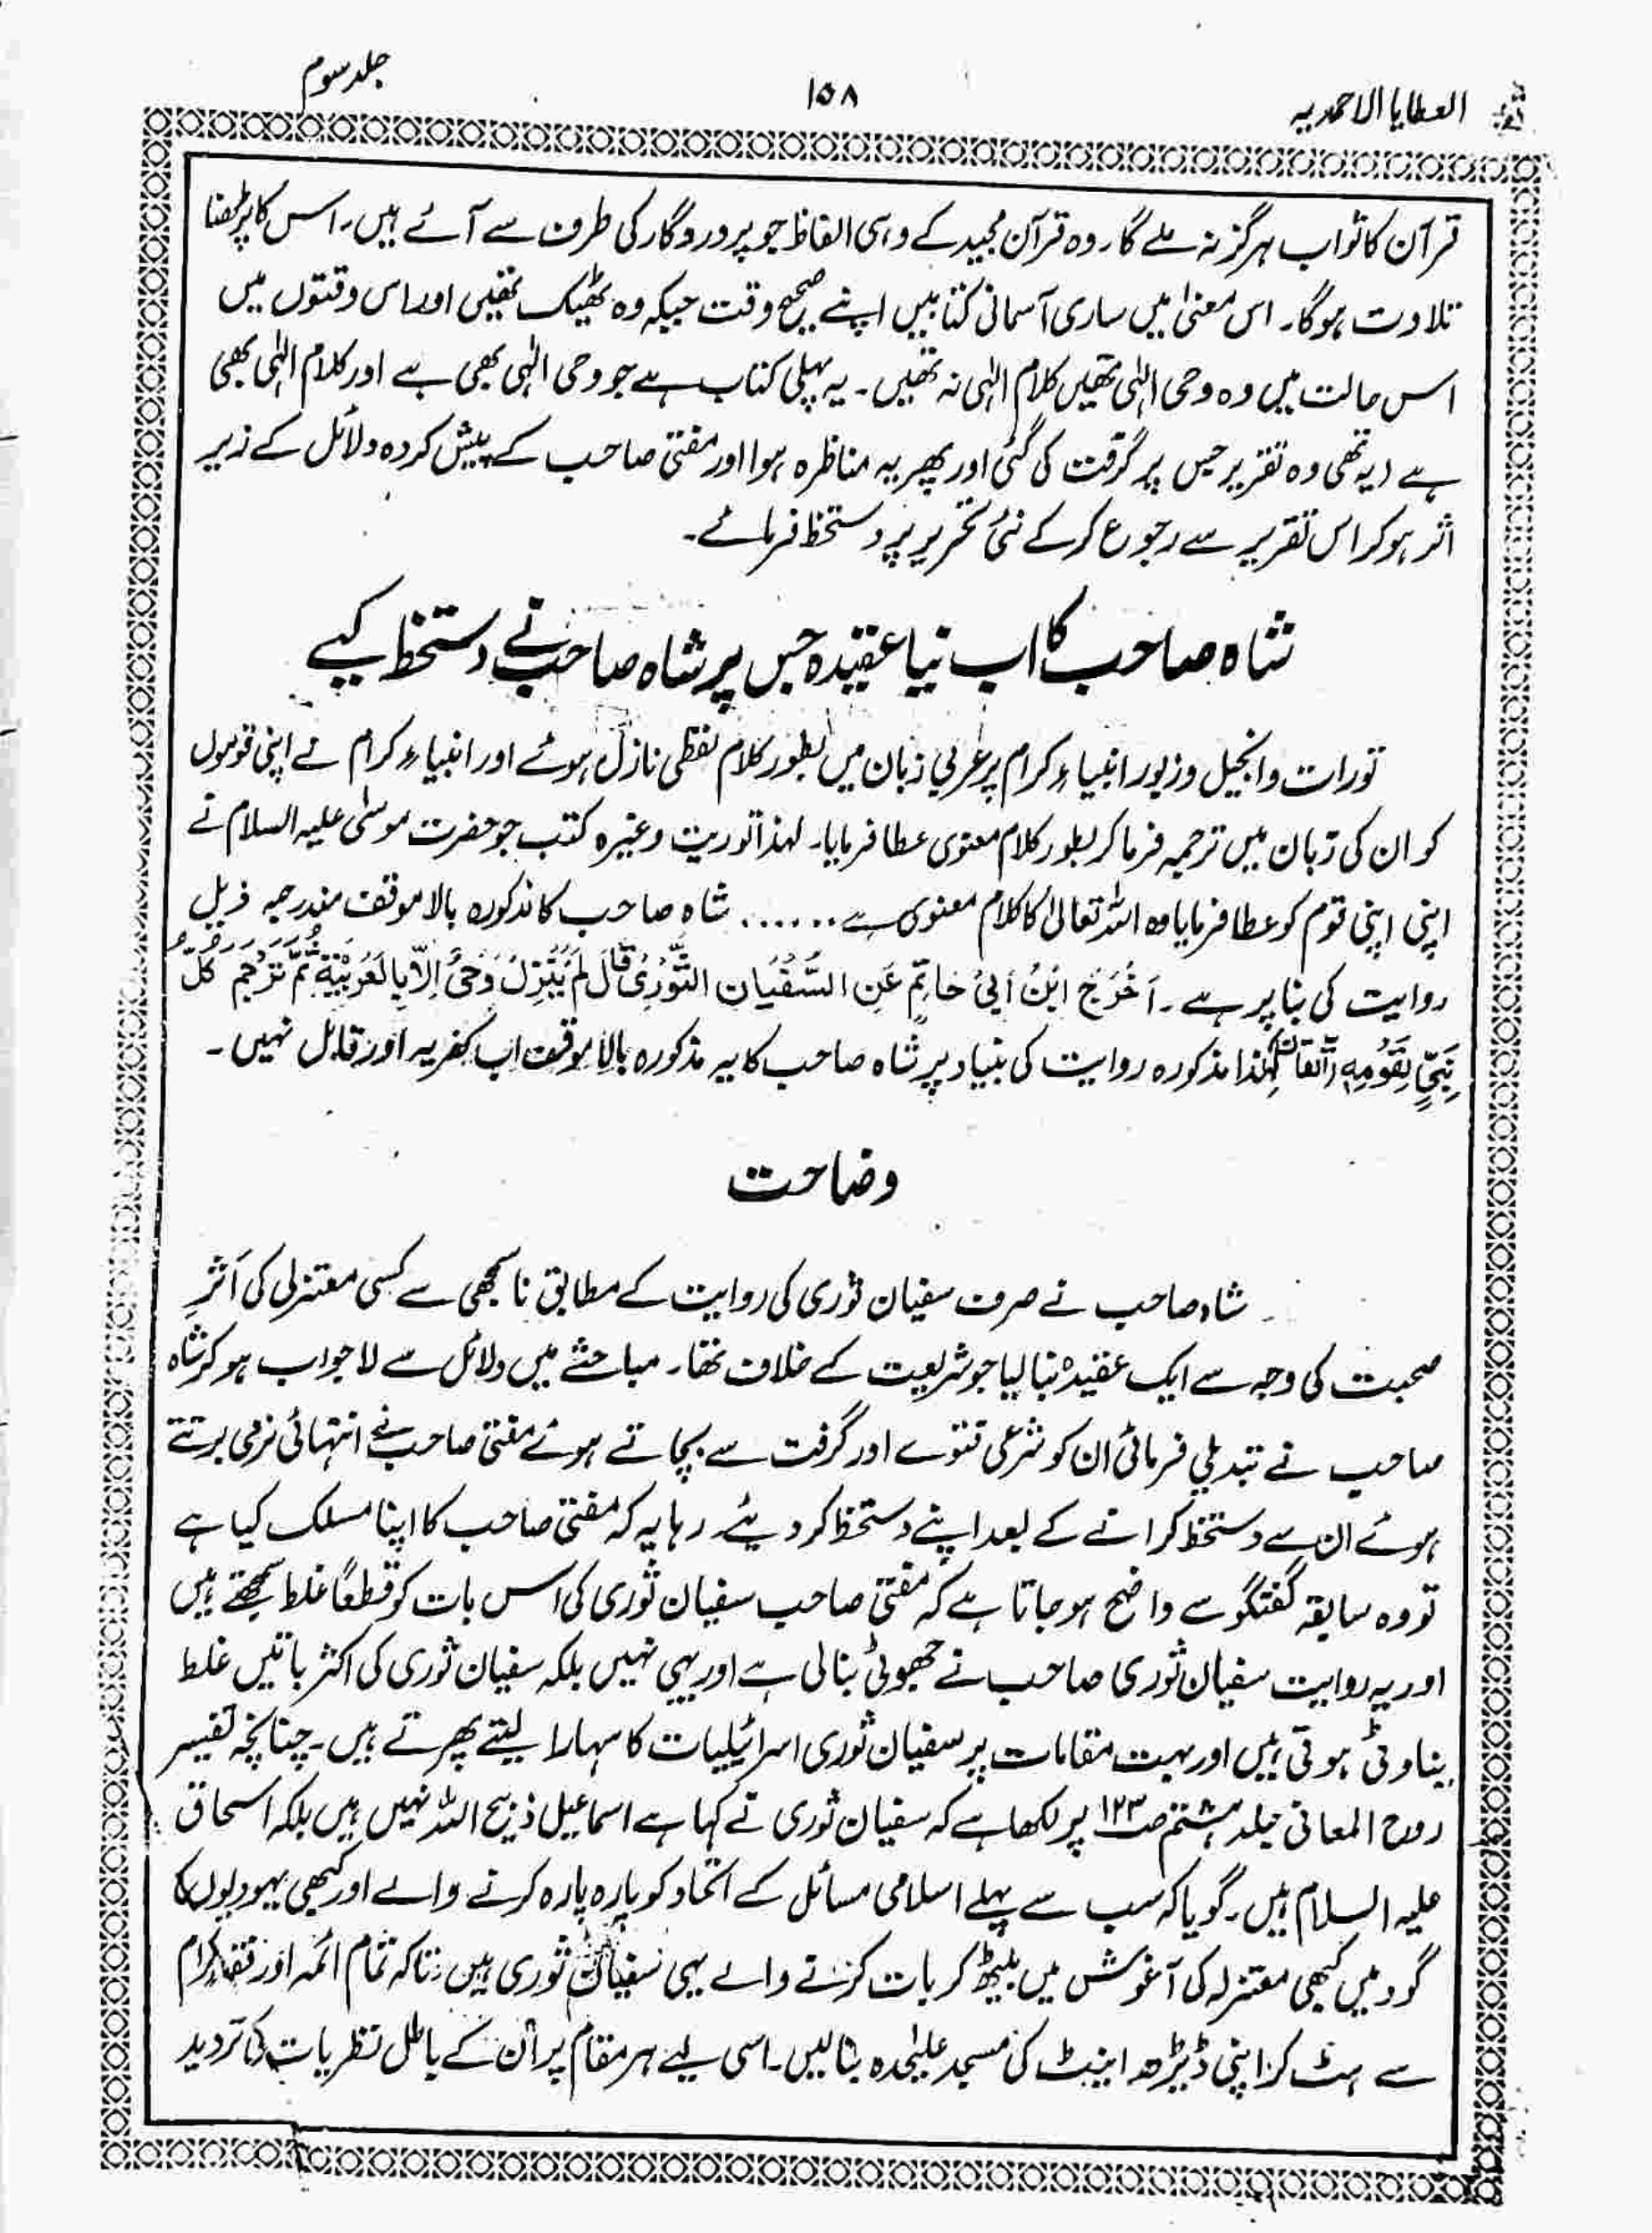 العطایا الاحمدیہ
۱۵۸
جلد سوم
قرآن کا ثواب ہرگز نہ ملے گا۔ وہ قرآن مجید کے وہی الفاظ جو پروردگار کی طرف سے آئے ہیں، اس کا پڑھنا
تلاوت ہوگا۔ اس معنیٰ میں ساری آسمانی کتابیں اپنے صحیح وقت جبکہ وہ ٹھیک تھیں اور اس وقتوں میں
اس حالت میں وہ وحی الٰہی تھیں کلام الٰہی نہ تھیں۔ یہ پہلی کتاب ہے جو وحی الٰہی بھی ہے اور کلام الٰہی بھی
ہے (یہ تھی وہ تقریر جس پر گرفت کی گئی اور پھر یہ مناظرہ ہوا اور مفتی صاحب کے پیش کردہ دلائل کے زیر
اثر ہو کر اس تقریر سے رجوع کر کے نئی تحریر پر دستخط فرمائے۔
شاہ صاحب کا اب نیا عقیدہ جس پر شاہ صاحب نے دستخط کیے
تورات وانجیل وزبور انبیاء کرام پر عربی زبان میں بطور کلام لفظی نازل ہوئے اور انبیاء کرام نے اپنی قوموں
کو ان کی زبان میں ترجمہ فرما کر بطور کلام معنوی عطا فرمایا۔ لہذا توریت وغیرہ کتب جو حضرت موسٰی علیہ السلام نے
اپنی اپنی قوم کو عطا فرمایا وہ اللہ تعالیٰ کا کلام معنوی ہے ....... شاہ صاحب کا مذکورہ بالا موقف مندرجہ ذیل
روایت کی بنا پر ہے۔ اَخْرَجَ ابْنُ اَبِیْ حَاتِمٍ عَنِ السُّفْیَانِ الثَّوْرِیْ قَالَ لَمْ یَنْزِلْ وَحْیٌ اِلَّا بِالْعَرَبِیَّةِ ثُمَّ تَرْجَمَ کُلُّ
نَبِیٍّ لِقَوْمِهٖ (اتقان) لہٰذا مذکورہ روایت کی بنیاد پر شاہ صاحب کا یہ مذکورہ بالا موقف اب کفریہ اور قابل نہیں۔
وضاحت
شاہ صاحب نے صرف سفیان ثوری کی روایت کے مطابق ناسمجھی سے کسی معتزلی کی اَثرِ
صحبت کی وجہ سے ایک عقیدہ بنا لیا جو شریعت کے خلاف تھا۔ مباحثے میں دلائل سے لاجواب ہو کر شاہ
صاحب نے تبدیلی فرمائی ان کو شرعی فتوے اور گرفت سے بچاتے ہوئے مفتی صاحب نے انتہائی نرمی برتتے
ہوئے ان سے دستخط کرانے کے بعد اپنے دستخط کر دیئے۔ رہا یہ کہ مفتی صاحب کا اپنا مسلک کیا ہے
تو وہ سابقہ گفتگو سے واضح ہو جاتا ہے کہ مفتی صاحب سفیان ثوری کی اس بات کو قطعًا غلط سمجھتے ہیں
اور یہ روایت سفیان ثوری صاحب نے جھوٹی بنالی ہے اور یہی نہیں بلکہ سفیان ثوری کی اکثر باتیں غلط
بناوٹی ہوتی ہیں اور بہت مقامات پر سفیان ثوری اسرائیلیات کا سہارا لیتے پھرتے ہیں۔ چنانچہ تفسیر
روح المعانی جلد ہشتم صـ۱۲۳ پر لکھا ہے کہ سفیان ثوری نے کہا ہے اسماعیل ذبیح اللہ نہیں ہیں بلکہ اسحاق
علیہ السلام ہیں۔ گویا کہ سب سے پہلے اسلامی مسائل کے اتحاد کو پارہ پارہ کرنے والے اور کبھی یہودیوں کی
گود میں کبھی معتزلہ کی آغوش میں بیٹھ کر بات کرنے والے یہی سفیان ثوری ہیں۔ تاکہ تمام ائمہ اور فقہاء کرام
سے ہٹ کر اپنی ڈیڑھ اینٹ کی مسجد علیٰحدہ بنا لیں۔ اسی لیے ہر مقام پر ان کے باطل نظریات کی تردید